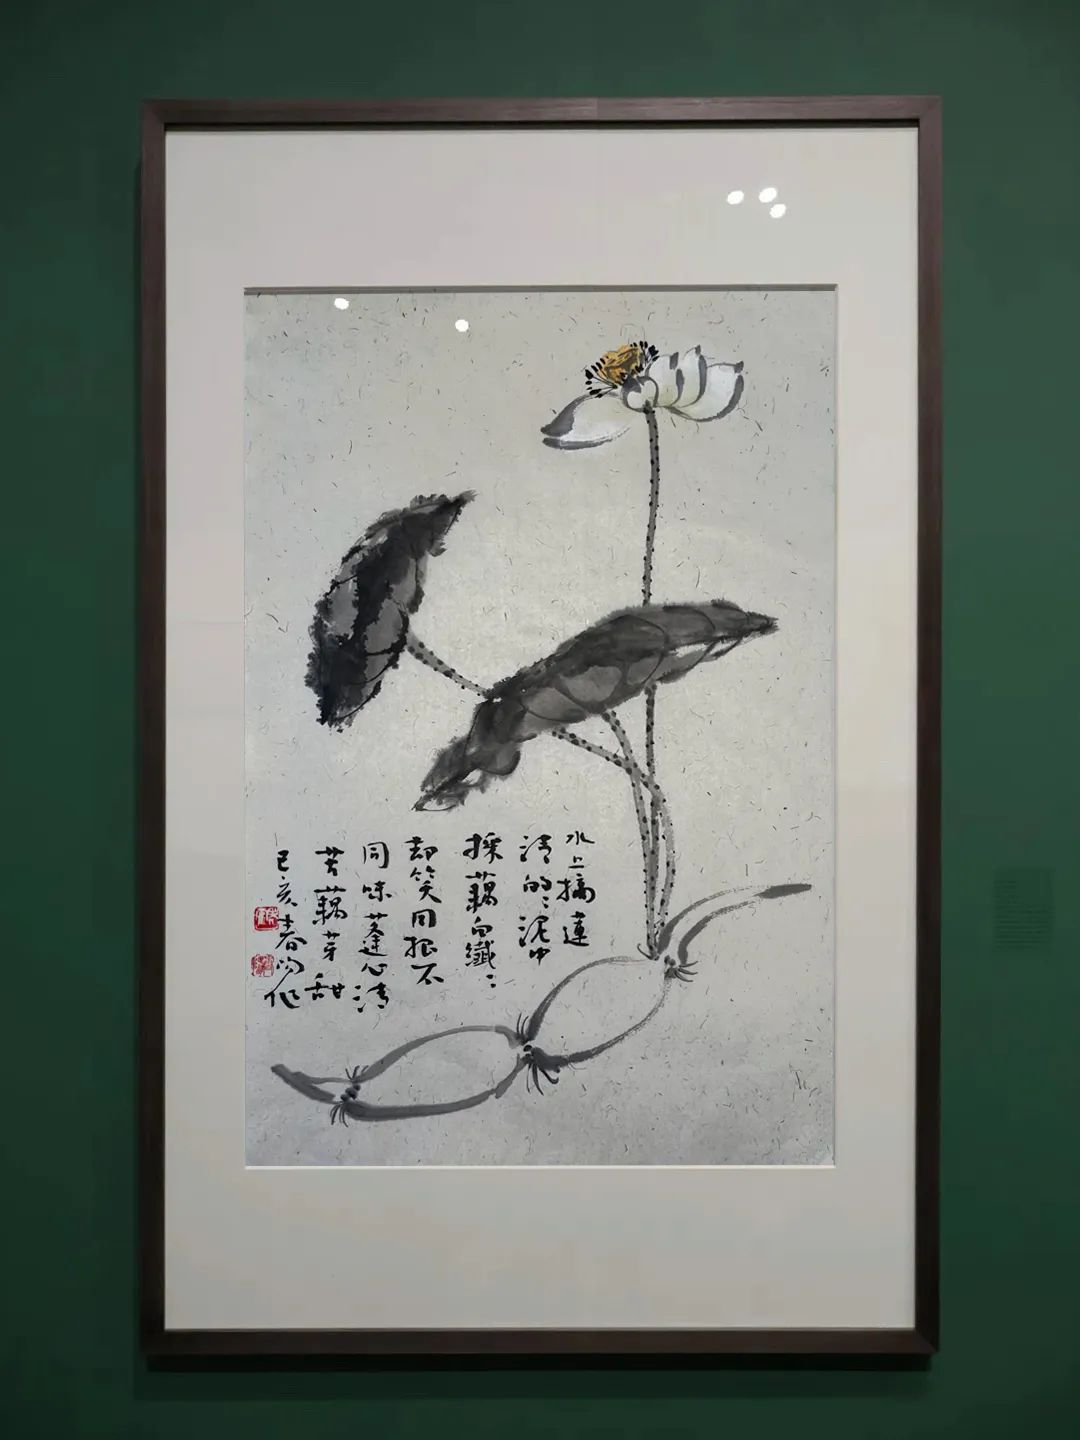 水上摘蓮
清的的泥中
採藕白纖纖
却笑同根不
同味蓬心清
苦藕芽甜
己亥春
作